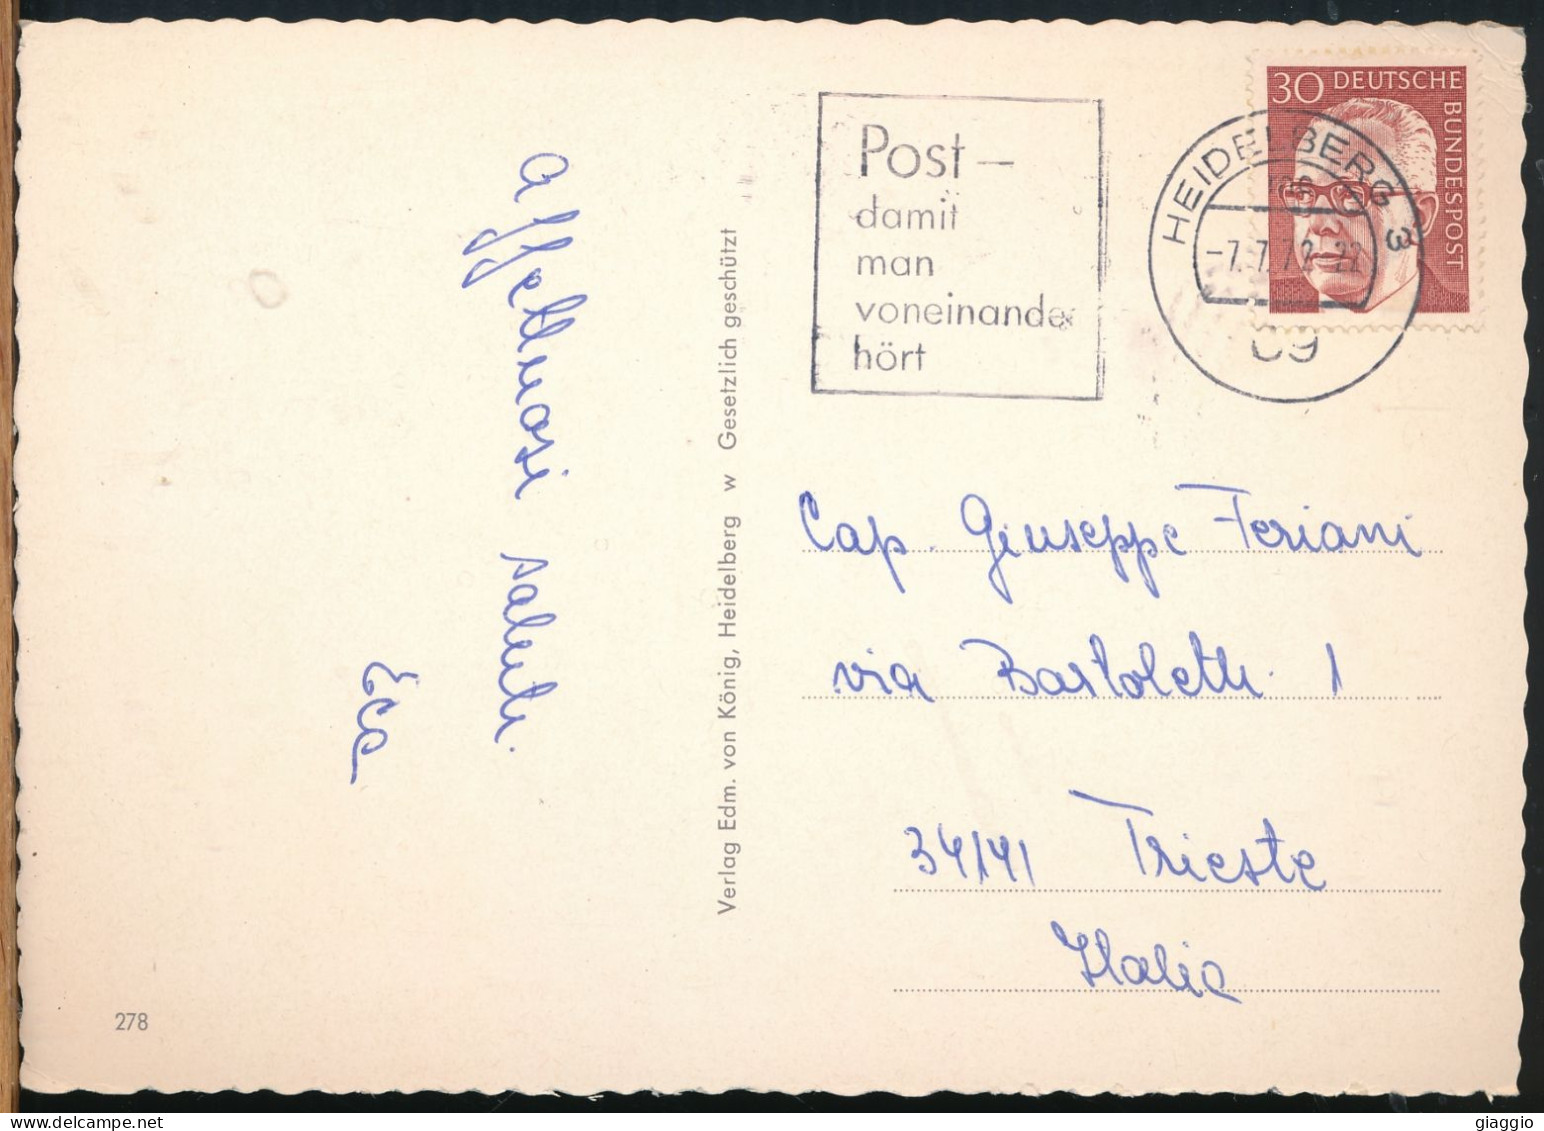 30 DEUTSCHE BUNDESPOST
HEIDELBERG 3
-7.7.72-22
69
Post –
damit
man
voneinander
hört
Affettuosi saluti.
Verlag Edm. von König, Heidelberg w Gesetzlich geschützt
Cap. Giuseppe Feriani
via Bartoletti 1
34141 Trieste
Italia
278
giaggio